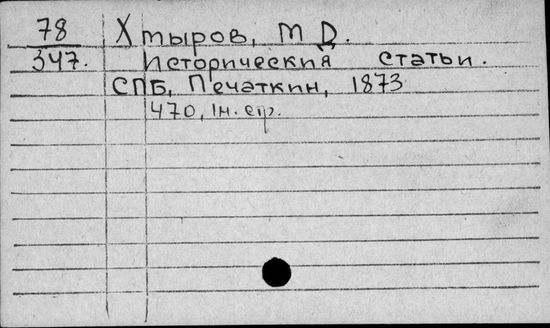 78 Хтыров, М Д.
347. Историческия статьи.
СПБ, Печаткин, 1873
470, 1н. стр.